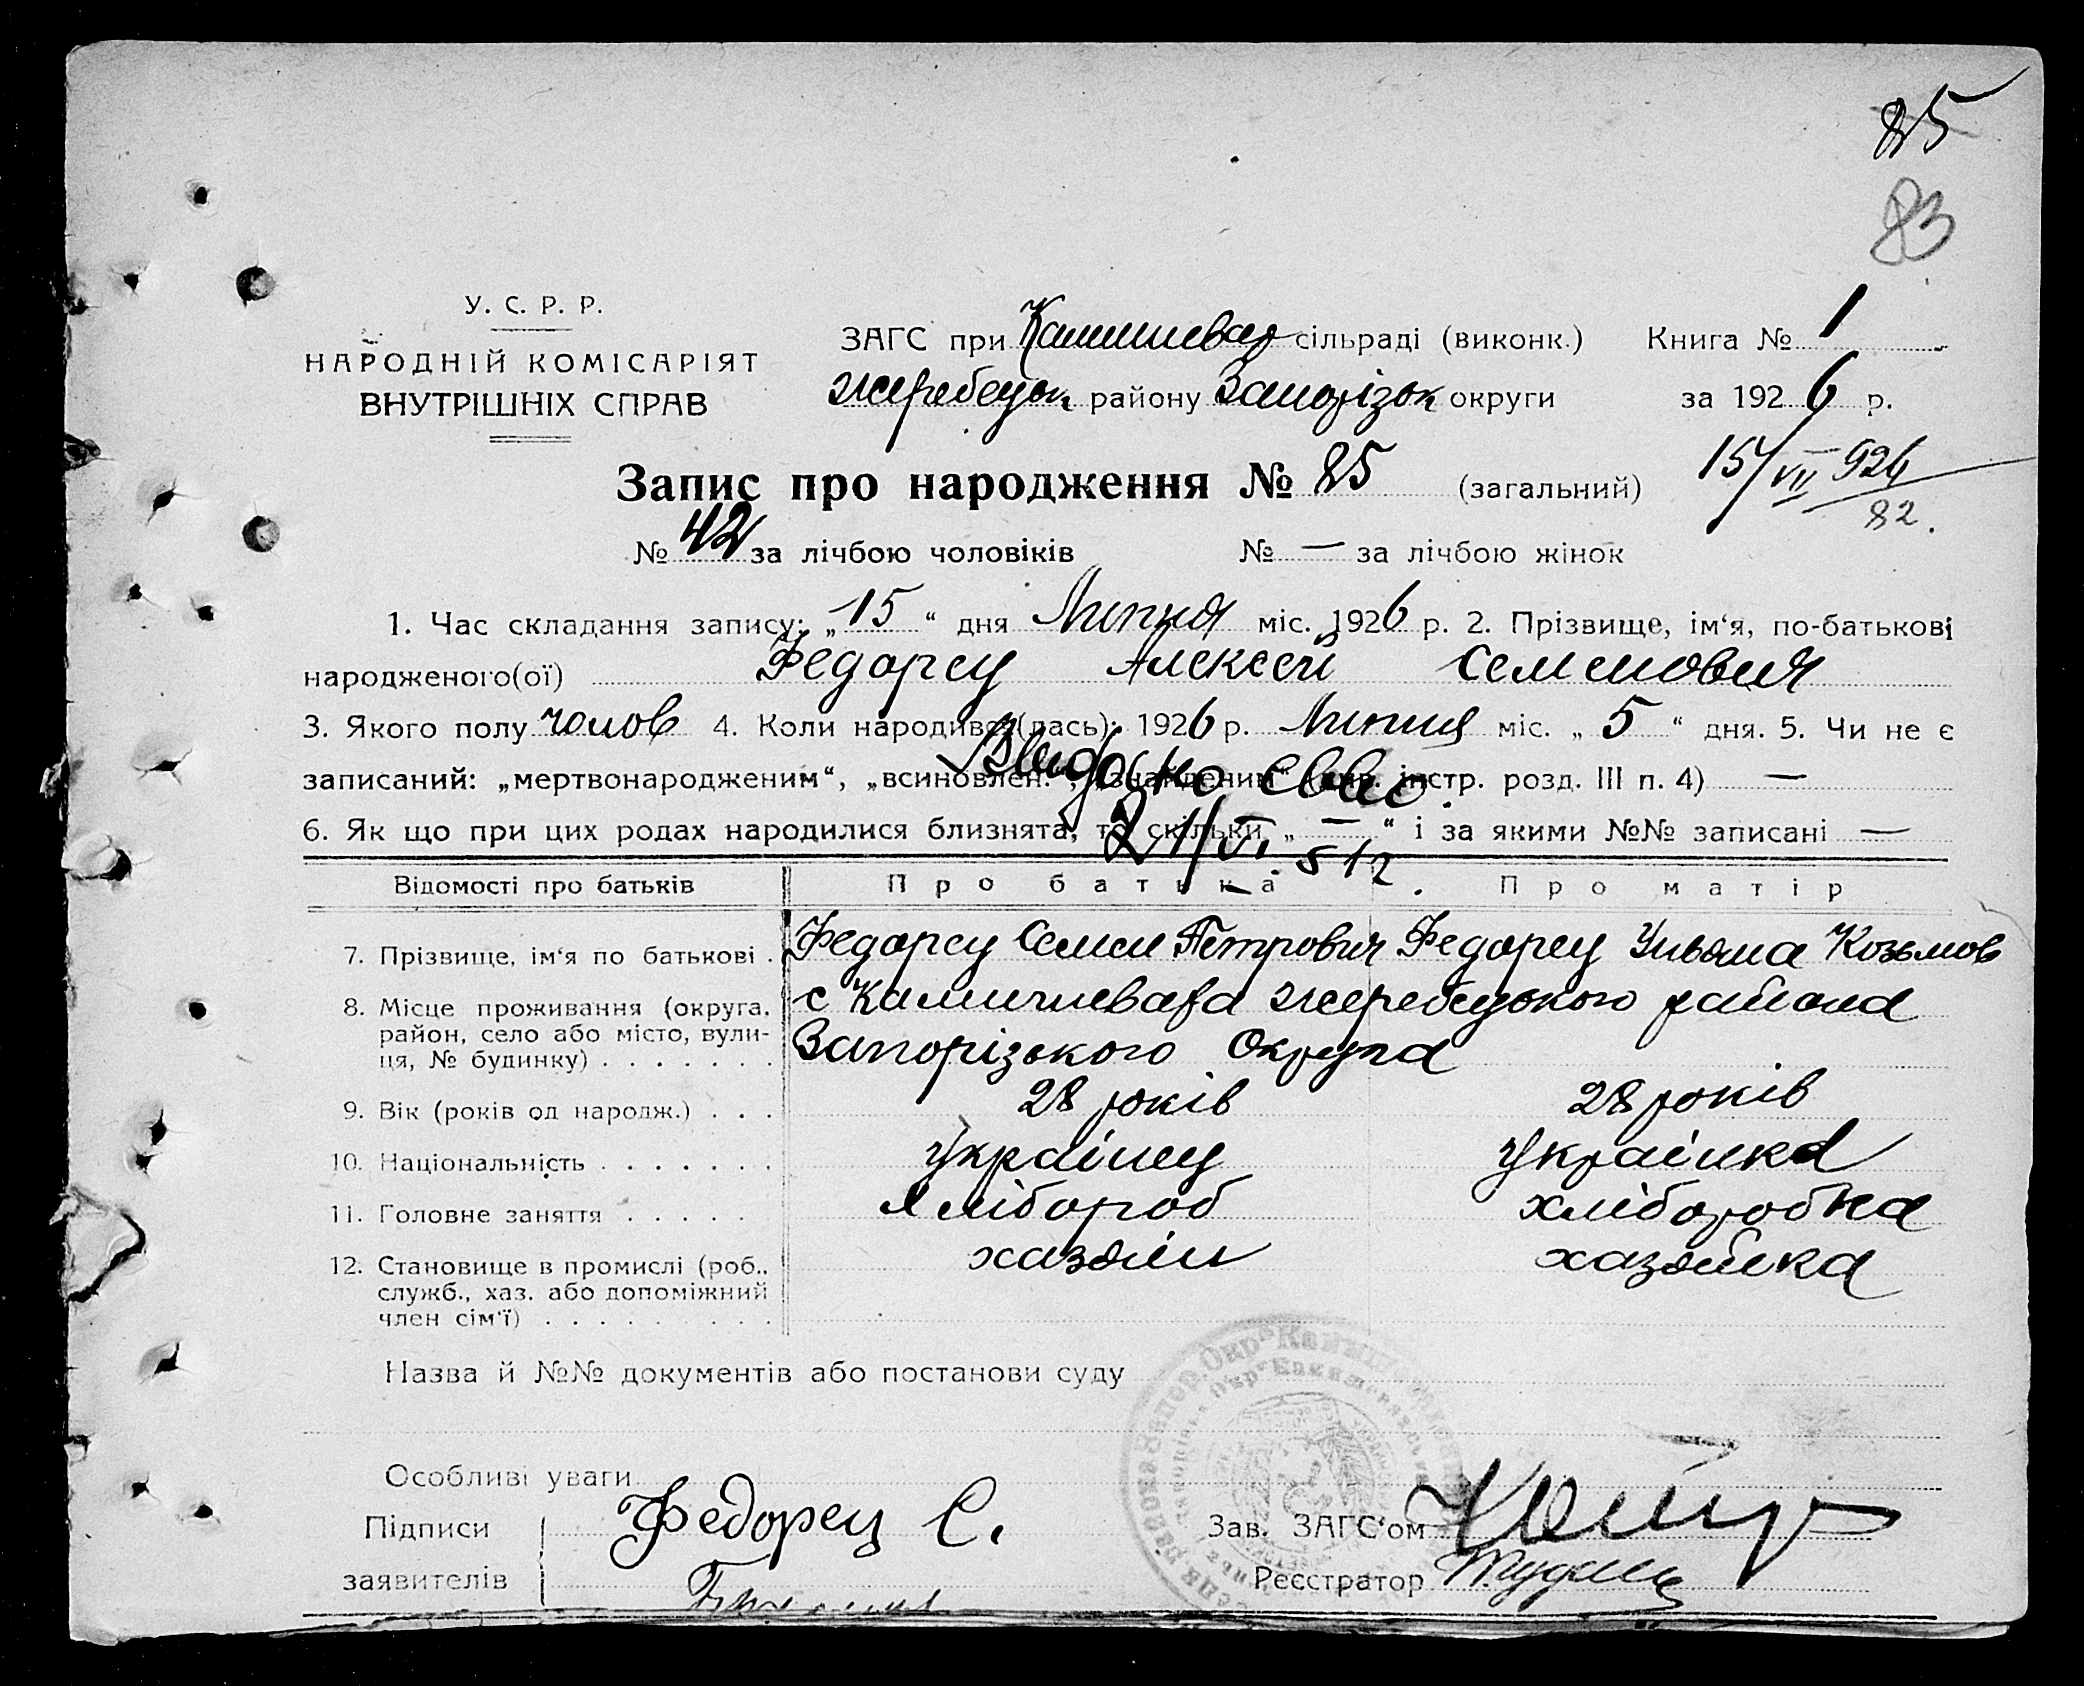 85
83
У. С. Р. Р.
НАРОДНІЙ КОМІСАРІЯТ
ВНУТРІШНІХ СПРАВ
ЗАГС при Камишеваз сільраді (виконк.) Книга № 1
Жеребецьк району Запорізьк округи за 1926 р.
Запис про народження № 85 (загальний) 15/VII 926
82.
№ 42 за лічбою чоловіків № — за лічбою жінок
1. Час складання запису: „15“ дня Липня міс. 1926 р. 2. Прізвище, ім‘я, по-батькові
народженого(ої) Федорец Алексей Семенович
3. Якого полу чолов 4. Коли народився(лась): 1926 р. Липня міс. „5“ дня. 5. Чи не є
записаний: „мертвонародженим“, „всиновлен.“, „знайденим“ (див. інстр. розд. III п. 4) —
6. Як що при цих родах народилися близнята, то скільки „—“ і за якими №№ записані —
Відомості про батьків Про батька Про матір
7. Прізвище, ім‘я по батькові . Федорец Семен Петрович Федорец Ульяна Козьмов
8. Місце проживання (округа, район, село або місто, вулиця, № будинку) . . . . . . . с Камишеваха Жеребецького района
Запорізького Округа
9. Вік (років од народж.) . . . 28 років 28 років
10. Національність . . . . . . . українец українка
11. Головне заняття . . . . . хлібороб хліборобка
12. Становище в промислі (роб., служб., хаз. або допоміжний член сім‘ї) . . . . . . . . . хазяїн хазяйка
Назва й №№ документів або постанови суду
Особливі уваги
Підписи Федорец С. Зав. ЗАГС‘ом
заявителів Реєстратор